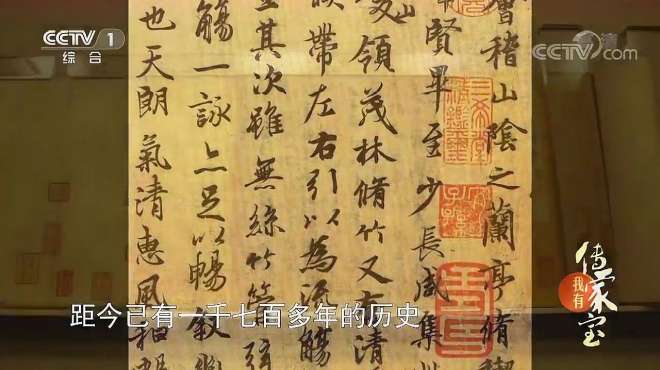 CCTV 1
综合
CCTV.com
會稽山陰之蘭亭脩禊
賢畢至少長咸集此
領茂林脩竹又有清
帶左右引以為流觴
其次雖無絲竹管弦
觴一詠亦足以暢敘幽
也天朗氣清惠風和暢
距今已有一千七百多年的历史
我有
传家宝